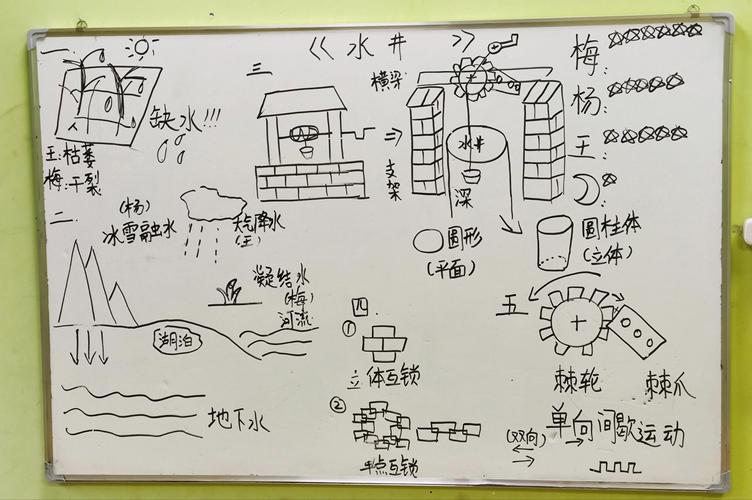 《水井》
一
缺水!!!
王:枯萎
梅:干裂
二
(杨)
冰雪融水
天气降水
(王)
凝结水
(梅)
河流
湖泊
地下水
三
横梁
支架
水井
深
圆形
(平面)
圆柱体
(立体)
梅:
杨:
王:
四
①
立体互锁
②
半点互锁
五
棘轮
棘爪
单向间歇运动
(双向)